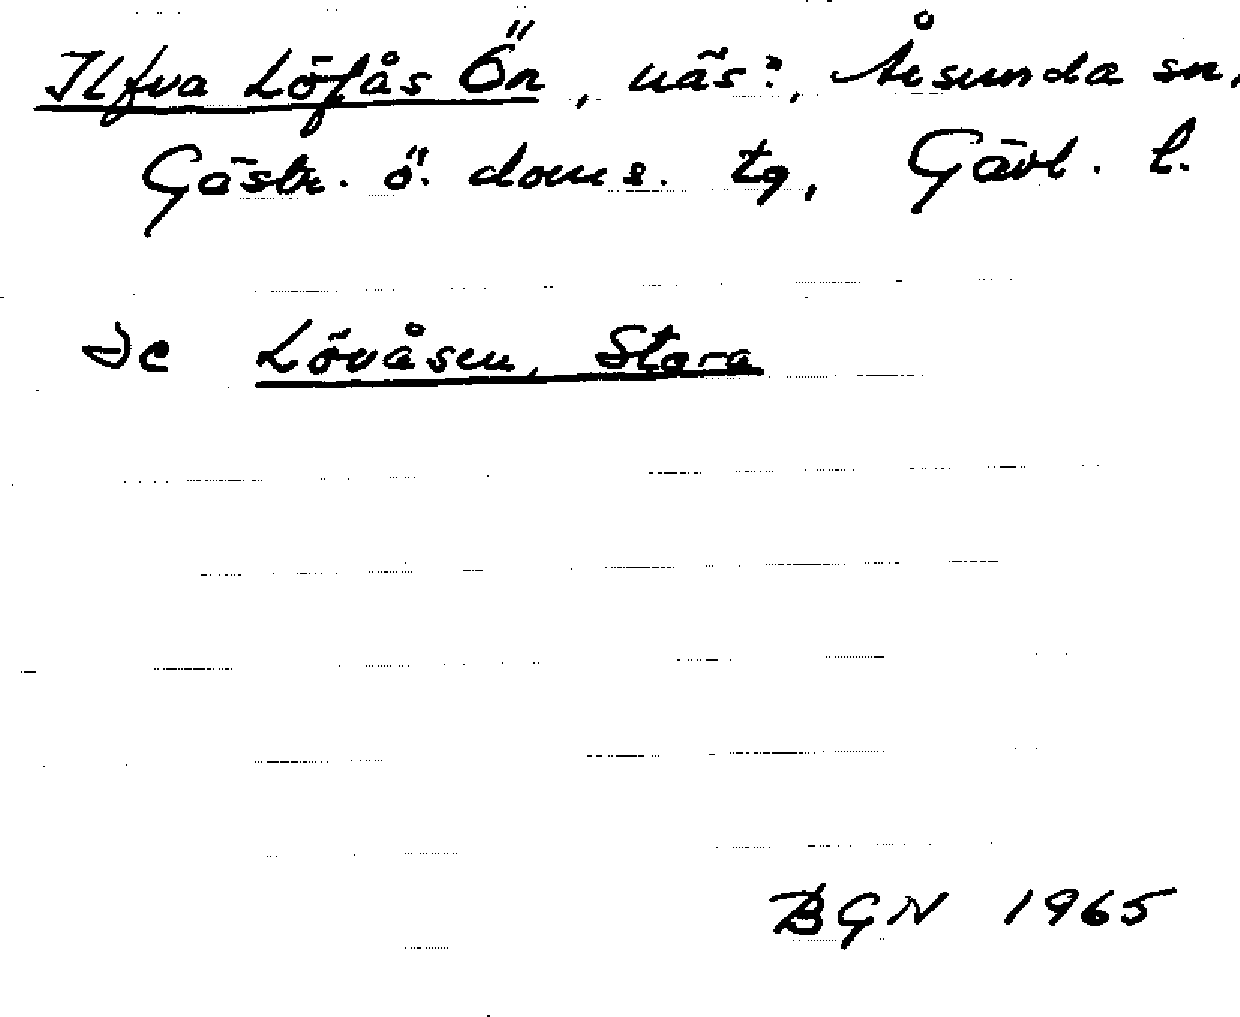 Ilfva Löfås Ön, näs?, Årsunda sn,
Gästr. ö. doms. tg, Gävl. l.
Se Lövåsen, Stora
BGN 1965